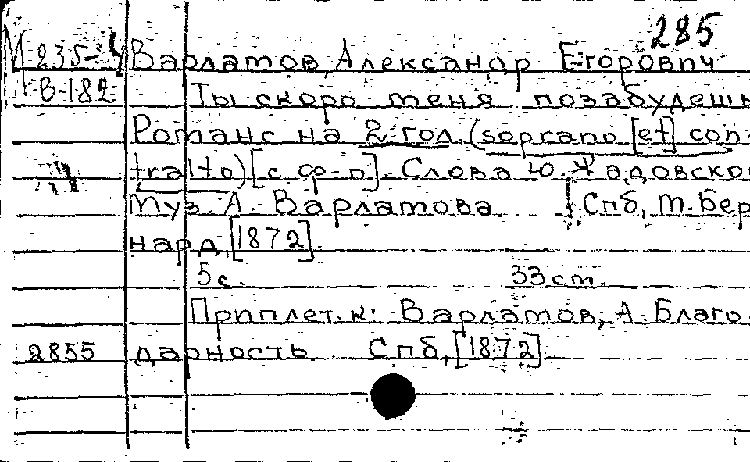 285
М 235-4 Варламов, Александр Егорович
В-182 Ты скоро меня позабудешь
Романс на 2 гол. (soprano [et] con-
tralto) [с ф-п]. Слова Ю. Жадовской
Муз. А. Варламова Спб, М. Бер-
нард, [1872].
5 с. 33 см.
Приплет. к: Варламов, А. Благо-
2855 дарность. Спб, [1872].